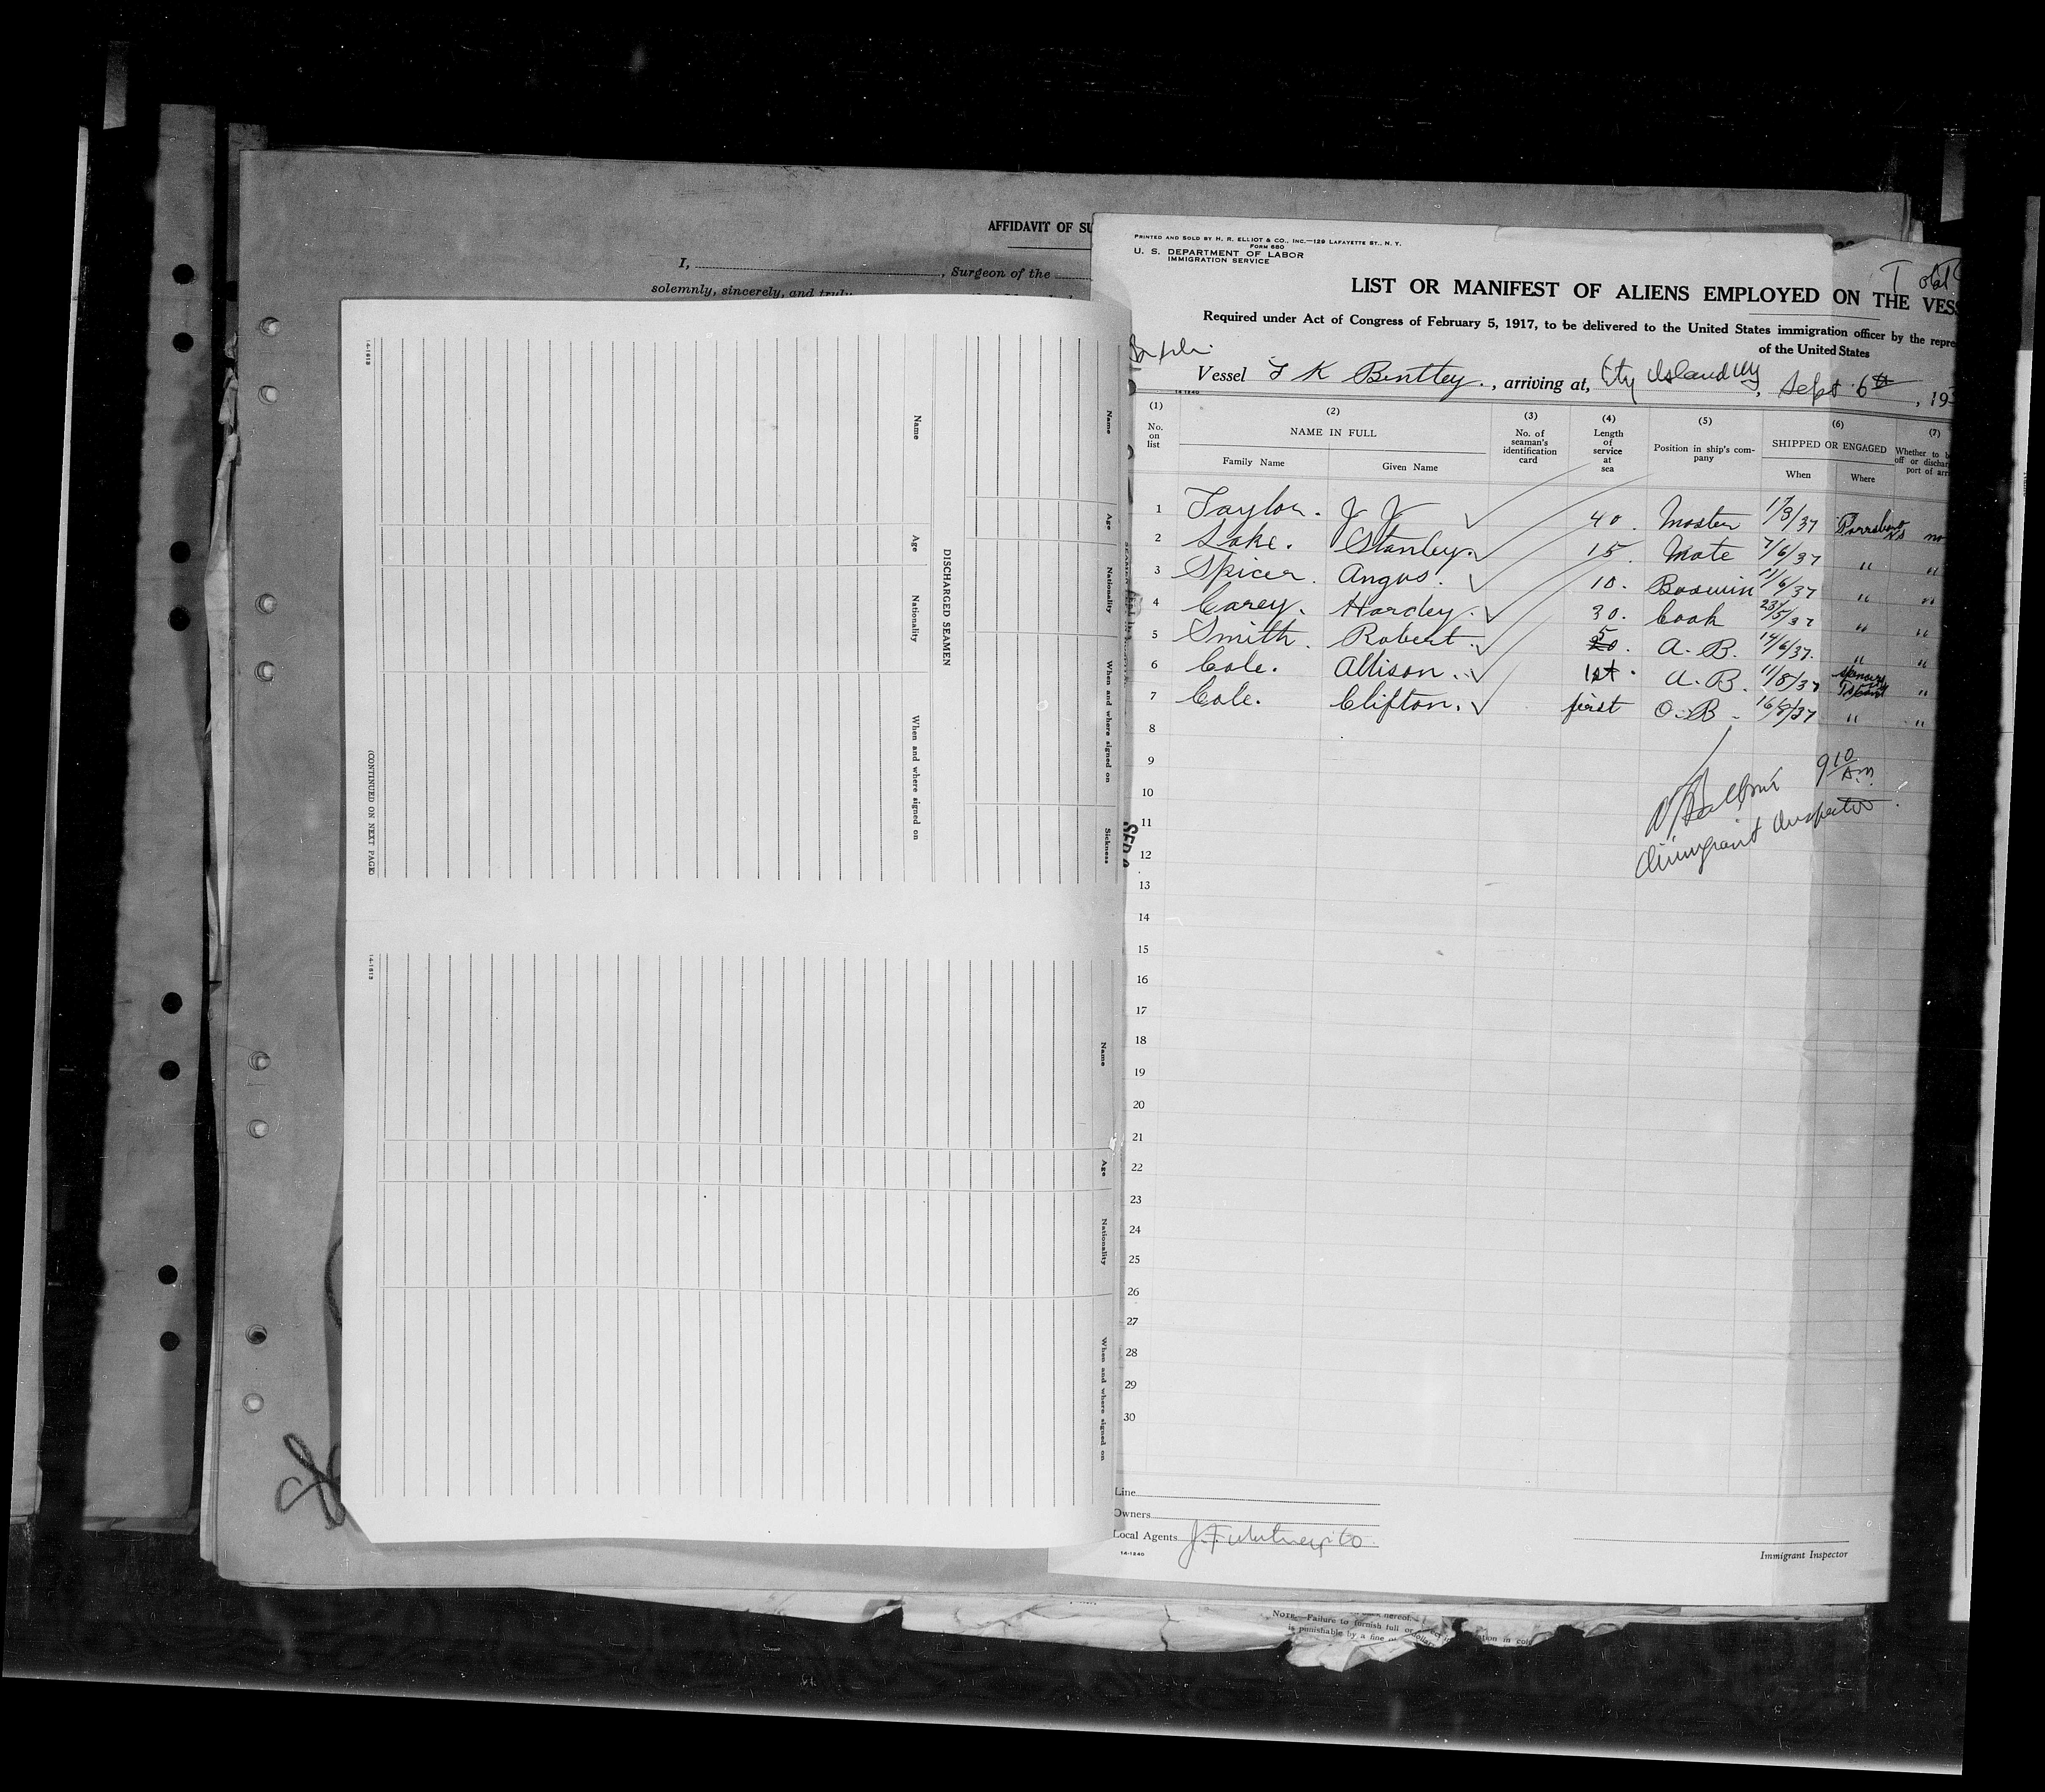 AFFIDAVIT OF SU
I, , Surgeon of the
solemnly, sincerely, and truly
14-1613
Name
Age
Nationality
When and where signed on
DISCHARGED SEAMEN
Name
Age
Nationality
When and where signed on
Sickness
(CONTINUED ON NEXT PAGE)
14-1613
Name
Age
Nationality
When and where signed on
PRINTED AND SOLD BY H. R. ELLIOT & CO., INC.—129 LAFAYETTE ST., N. Y.
FORM 680
U. S. DEPARTMENT OF LABOR
IMMIGRATION SERVICE
LIST OR MANIFEST OF ALIENS EMPLOYED ON THE VESS
Required under Act of Congress of February 5, 1917, to be delivered to the United States immigration officer by the repre
of the United States
Vessel F K Bentley, arriving at, City Island NY, Sept 6th, 193
14-1240
(1) (2) (3) (4) (5) (6) (7)
No. on list NAME IN FULL No. of seaman's identification card Length of service at sea Position in ship's company SHIPPED OR ENGAGED Whether to b off or dischar port of arr
Family Name Given Name When Where
1 Taylor. J J 40. Master 17/3/37 Parrsboro NS no
2 Lake. Stanley. 15. Mate 7/6/37 " "
3 Spicer. Angus. 10. Boswin 11/6/37 " "
4 Carey. Hardey. 30. Cook 23/5/37 " "
5 Smith. Robert. 5. A. B. 14/6/37. " "
6 Cole. Allison. 1st. A. B. 11/8/37 "
7 Cole. Clifton. first O. B. 16/8/37 " "
8
9
10
11
12
13
14
15
16
17
18
19
20
21
22
23
24
25
26
27
28
29
30
9 10 A.M.
Immigrant Inspector
Line
Owners
Local Agents J. F. Whitney & Co
14-1240
Immigrant Inspector
hereof.
NOTE.—Failure to furnish full or
is punishable by a fine